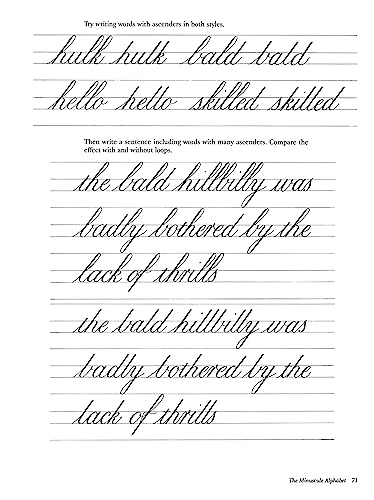 Try writing words with ascenders in both styles.
hulk hulk bald bald
hello hello skilled skilled
Then write a sentence including words with many ascenders. Compare the
effect with and without loops.
the bald hillbilly was
badly bothered by the
lack of thrills
the bald hillbilly was
badly bothered by the
lack of thrills
The Minuscule Alphabet 71